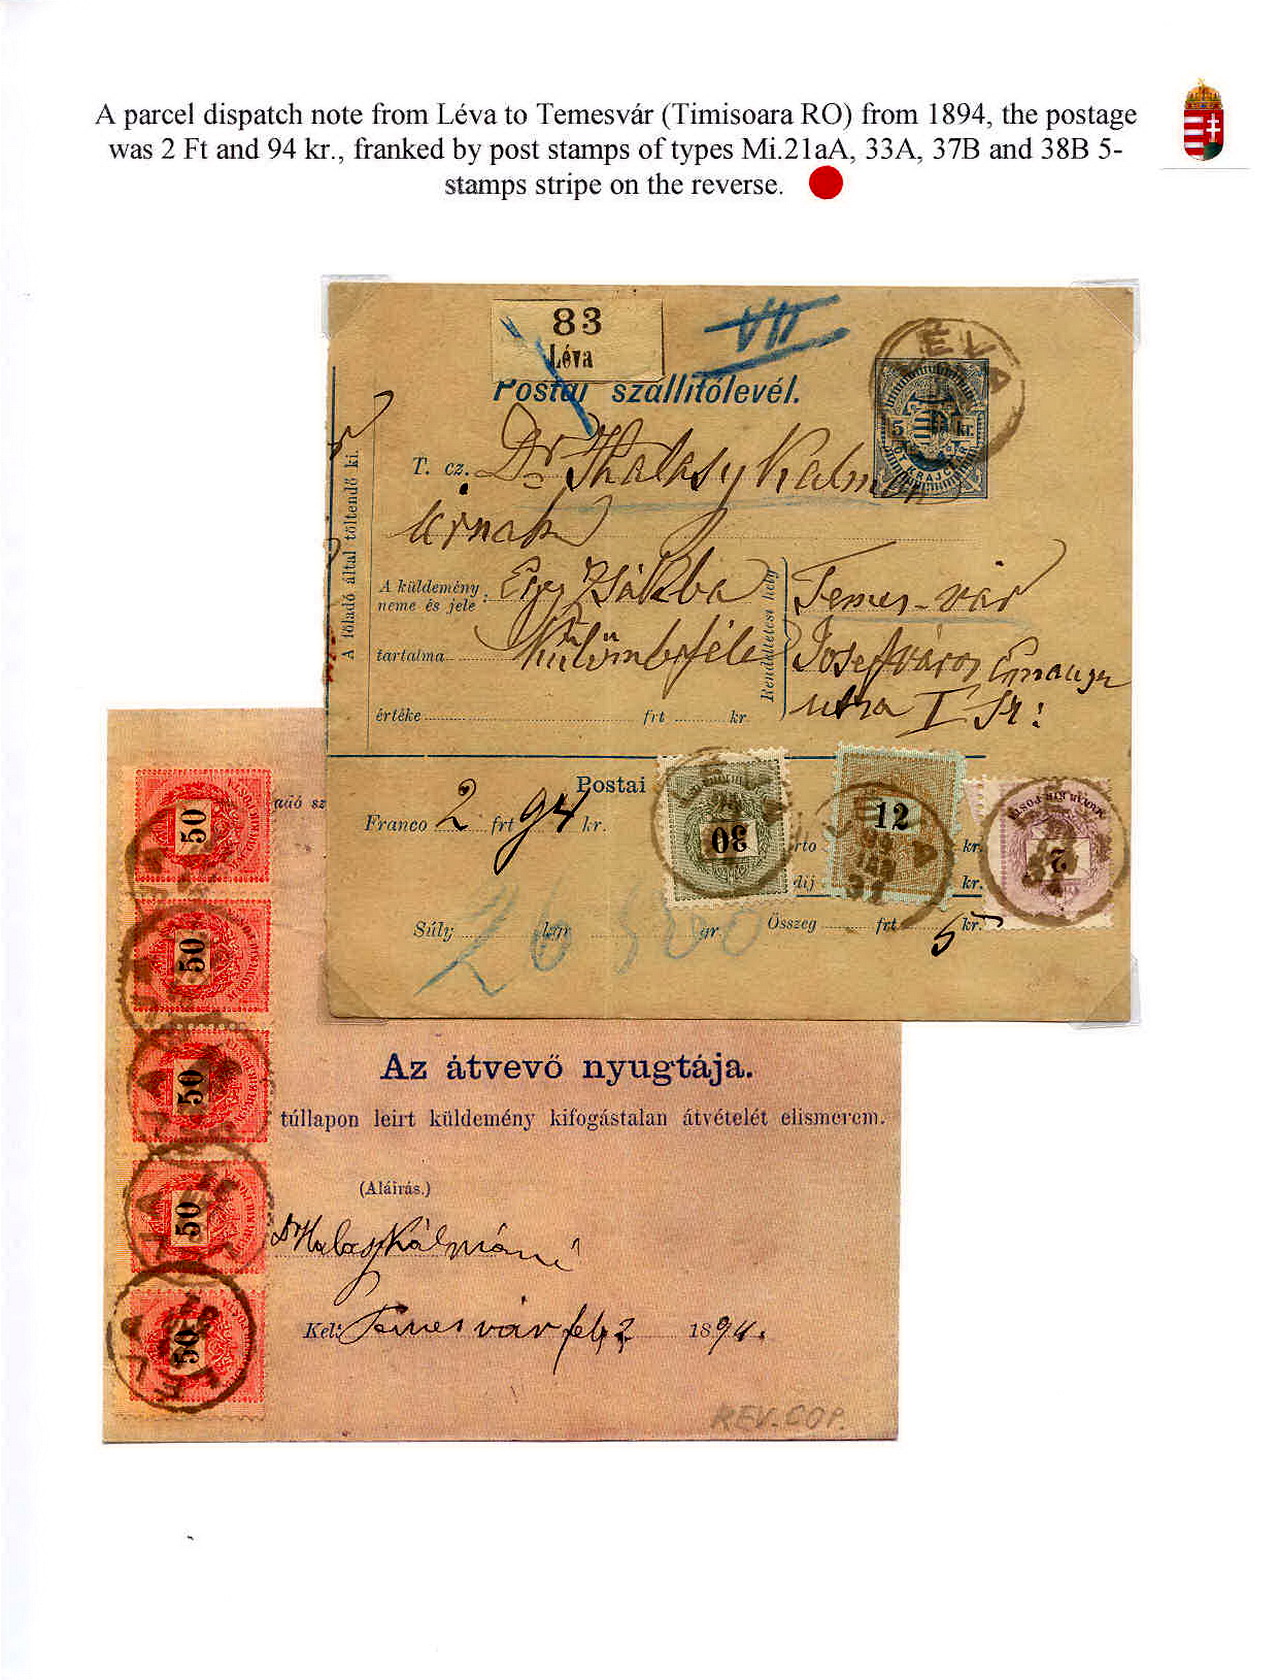 A parcel dispatch note from Léva to Temesvár (Timisoara RO) from 1894, the postage
was 2 Ft and 94 kr., franked by post stamps of types Mi.21aA, 33A, 37B and 38B 5-
stamps stripe on the reverse.
83
Léva
VII
Postai szállitólevél.
LÉVA
5 kr.
KRAJCZÁR
T. cz. Dr Thalasy Kalmán
úrnak
A föladó által töltendő ki.
A küldemény neme és jele : Egy zsákba
tartalma Külömbféle
értéke frt kr.
Rendeltetési hely
Temes-vár
Josefváros
utza I
Postai
Franco 2 frt 94 kr.
30
12
2
rto kr.
dij kr.
Súly kgr. gr.
26 500
Összeg frt 5 kr.
adó sz
50
50
50
50
50
Az átvevő nyugtája.
túllapon leirt küldemény kifogástalan átvételét elismerem.
(Aláirás.)
Dr Halasy Kálmán
Kelt Temesvár feb 2 1894.
REV. COP.